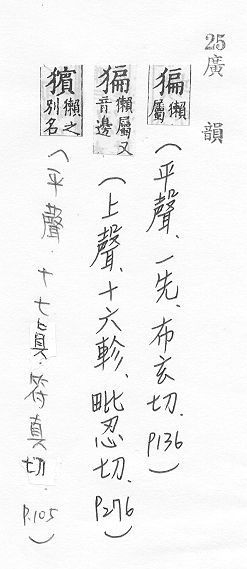 25廣韻
猵獺屬（平聲、一先、布玄切、P136）
猵獺屬又音邊（上聲、十六軫、毗忍切、P276）
獱獺之別名（平聲、十七真、符真切、P.105）